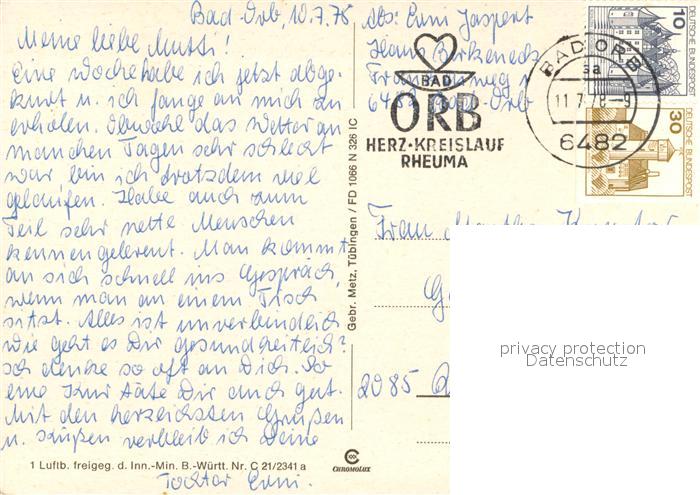 Bad-Orb, 10.7.78
Meine liebe Mutti!
Eine Woche habe ich jetzt abge-
kurt u. ich fange an mich zu
erholen. Obwohl das Wetter an
manchen Tagen sehr schlecht
war bin ich trotzdem viel
gelaufen. Habe auch zum
Teil sehr nette Menschen
kennengelernt. Man kommt
an sich schnell ins Gespräch,
wenn man an einem Tisch
sitzt. Alles ist unverbindlich
Wie geht es Dir gesundheitlich?
Ich denke so oft an Dich. So
eine Kur täte Dir auch gut.
Mit den herzlichsten Grüßen
u. Küßen verbleib ich Deine
Tochter Erni.
1 Luftb. freigeg. d. Inn.-Min. B.-Württ. Nr. C 21/2341 a
Gebr. Metz, Tübingen / FD 1066 N 326 IC
CHROMOLUX
Abs: Erni Jaspert
Haus Birkeneck
6482 Bad-Orb
BAD
ORB
HERZ·KREISLAUF
RHEUMA
BAD ORB
sa
11.7.78-9
6482
10
DEUTSCHE BUNDESPOST
30
DEUTSCHE BUNDESPOST
Frau
2085
privacy protection
Datenschutz